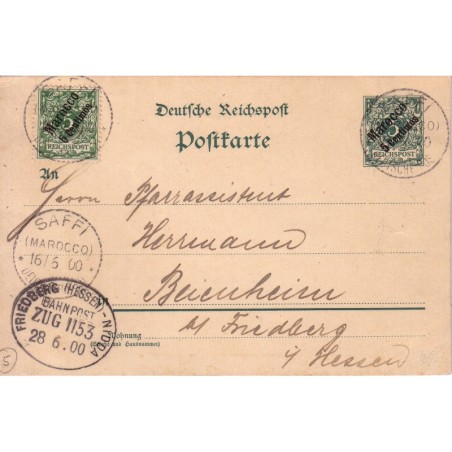 Deutsche Reichspost
Postkarte
Marocco
5 Centimos
REICHSPOST
Marocco
5 Centimos
REICHSPOST
An
Herrn Pfarrassistent
Herrmann
Beienheim
b/ Friedberg
i/ Hessen
SAFFI
(MAROCCO)
16/6 00
FRIEDBERG (HESSEN) - NIDDA
BAHNPOST
ZUG 1153
28 6.00
Wohnung
(Straße und Hausnummer)
5